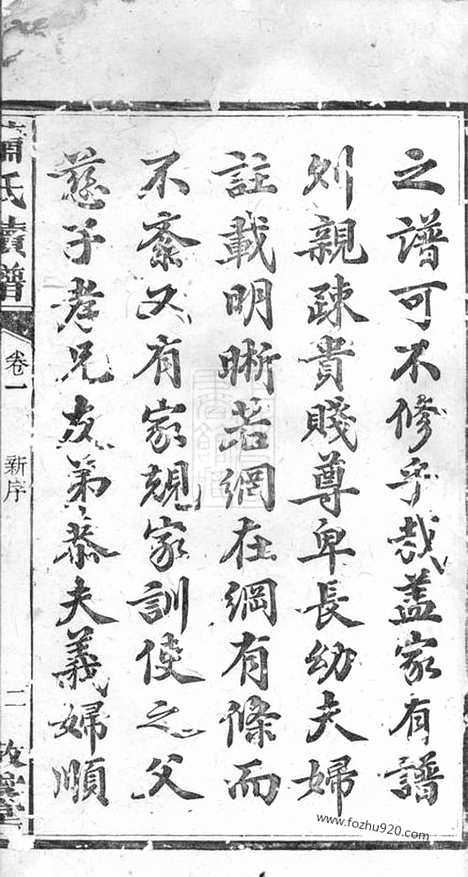 之譜可不修乎哉蓋家有譜
則親疎貴賤尊卑長幼夫婦
註載明晰若網在綱有條而
不紊又有家規家訓使之父
慈子孝兄友弟恭夫義婦順
蕭氏續譜
卷一
新序
二
www.fozhu920.com